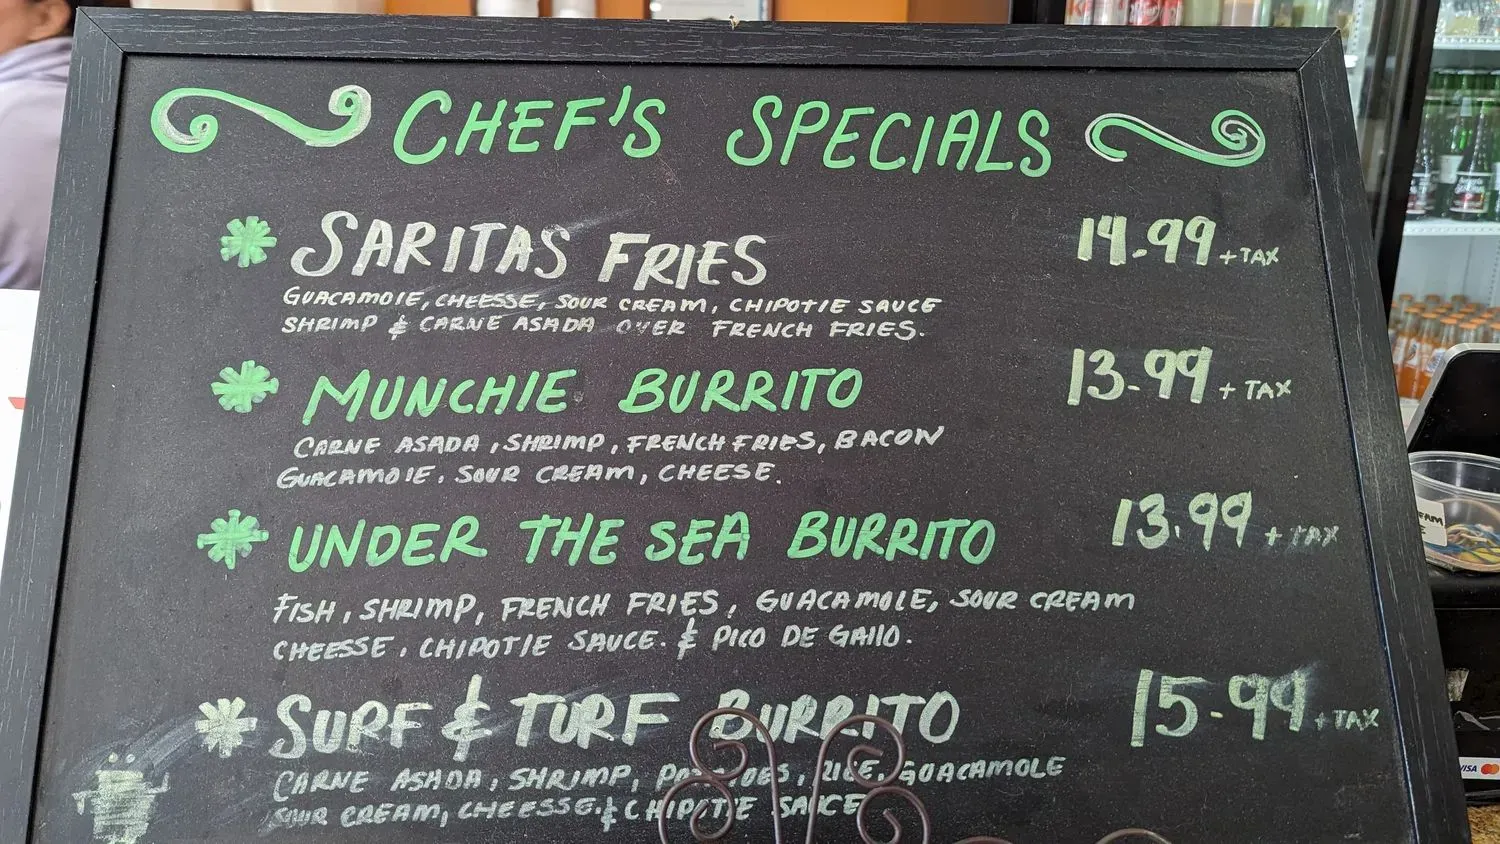 CHEF'S SPECIALS
SARITAS FRIES 14.99 + TAX
GUACAMOLE, CHEESSE, SOUR CREAM, CHIPOTLE SAUCE
SHRIMP & CARNE ASADA OVER FRENCH FRIES.
MUNCHIE BURRITO 13.99 + TAX
CARNE ASADA, SHRIMP, FRENCH FRIES, BACON
GUACAMOLE. SOUR CREAM, CHEESE.
UNDER THE SEA BURRITO 13.99 + TAX
FISH, SHRIMP, FRENCH FRIES, GUACAMOLE, SOUR CREAM
CHEESSE, CHIPOTLE SAUCE. & PICO DE GALLO.
SURF & TURF BURRITO 15.99 + TAX
CARNE ASADA, SHRIMP, POTATOES, RICE, GUACAMOLE
SOUR CREAM, CHEESSE. & CHIPOTLE SAUCE
VISA